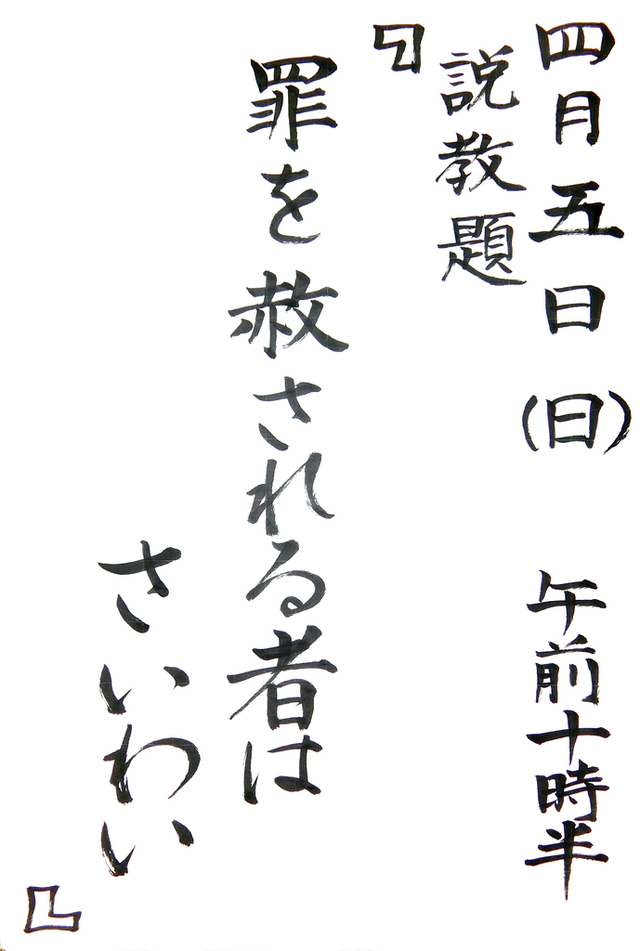 四月五日(日) 午前十時半
説教題
『罪を赦される者は
さいわい』